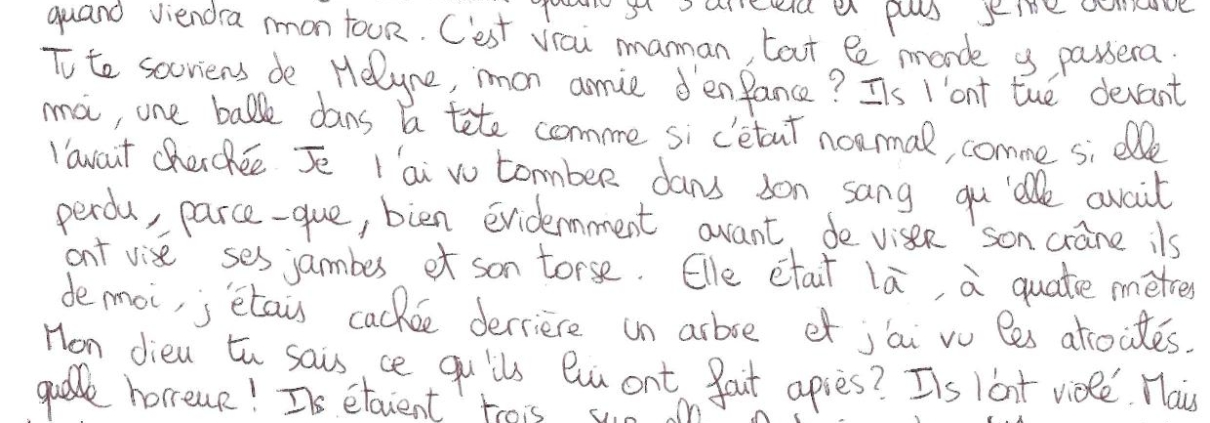 quand ça s'arrêtera et puis je me demande
quand viendra mon tour. C'est vrai maman, tout le monde y passera.
Tu te souviens de Melyne, mon amie d'enfance ? Ils l'ont tué devant
moi, une balle dans la tête comme si c'était normal, comme si elle
l'avait cherchée. Je l'ai vu tomber dans son sang qu'elle avait
perdu, parce-que, bien évidemment avant, de viser son crâne ils
ont visé ses jambes et son torse. Elle était là, à quatre mètres
de moi, j'étais cachée derrière un arbre et j'ai vu les atrocités.
Mon dieu tu sais ce qu'ils lui ont fait après ? Ils l'ont violé. Mais
quelle horreur ! Ils étaient trois sur